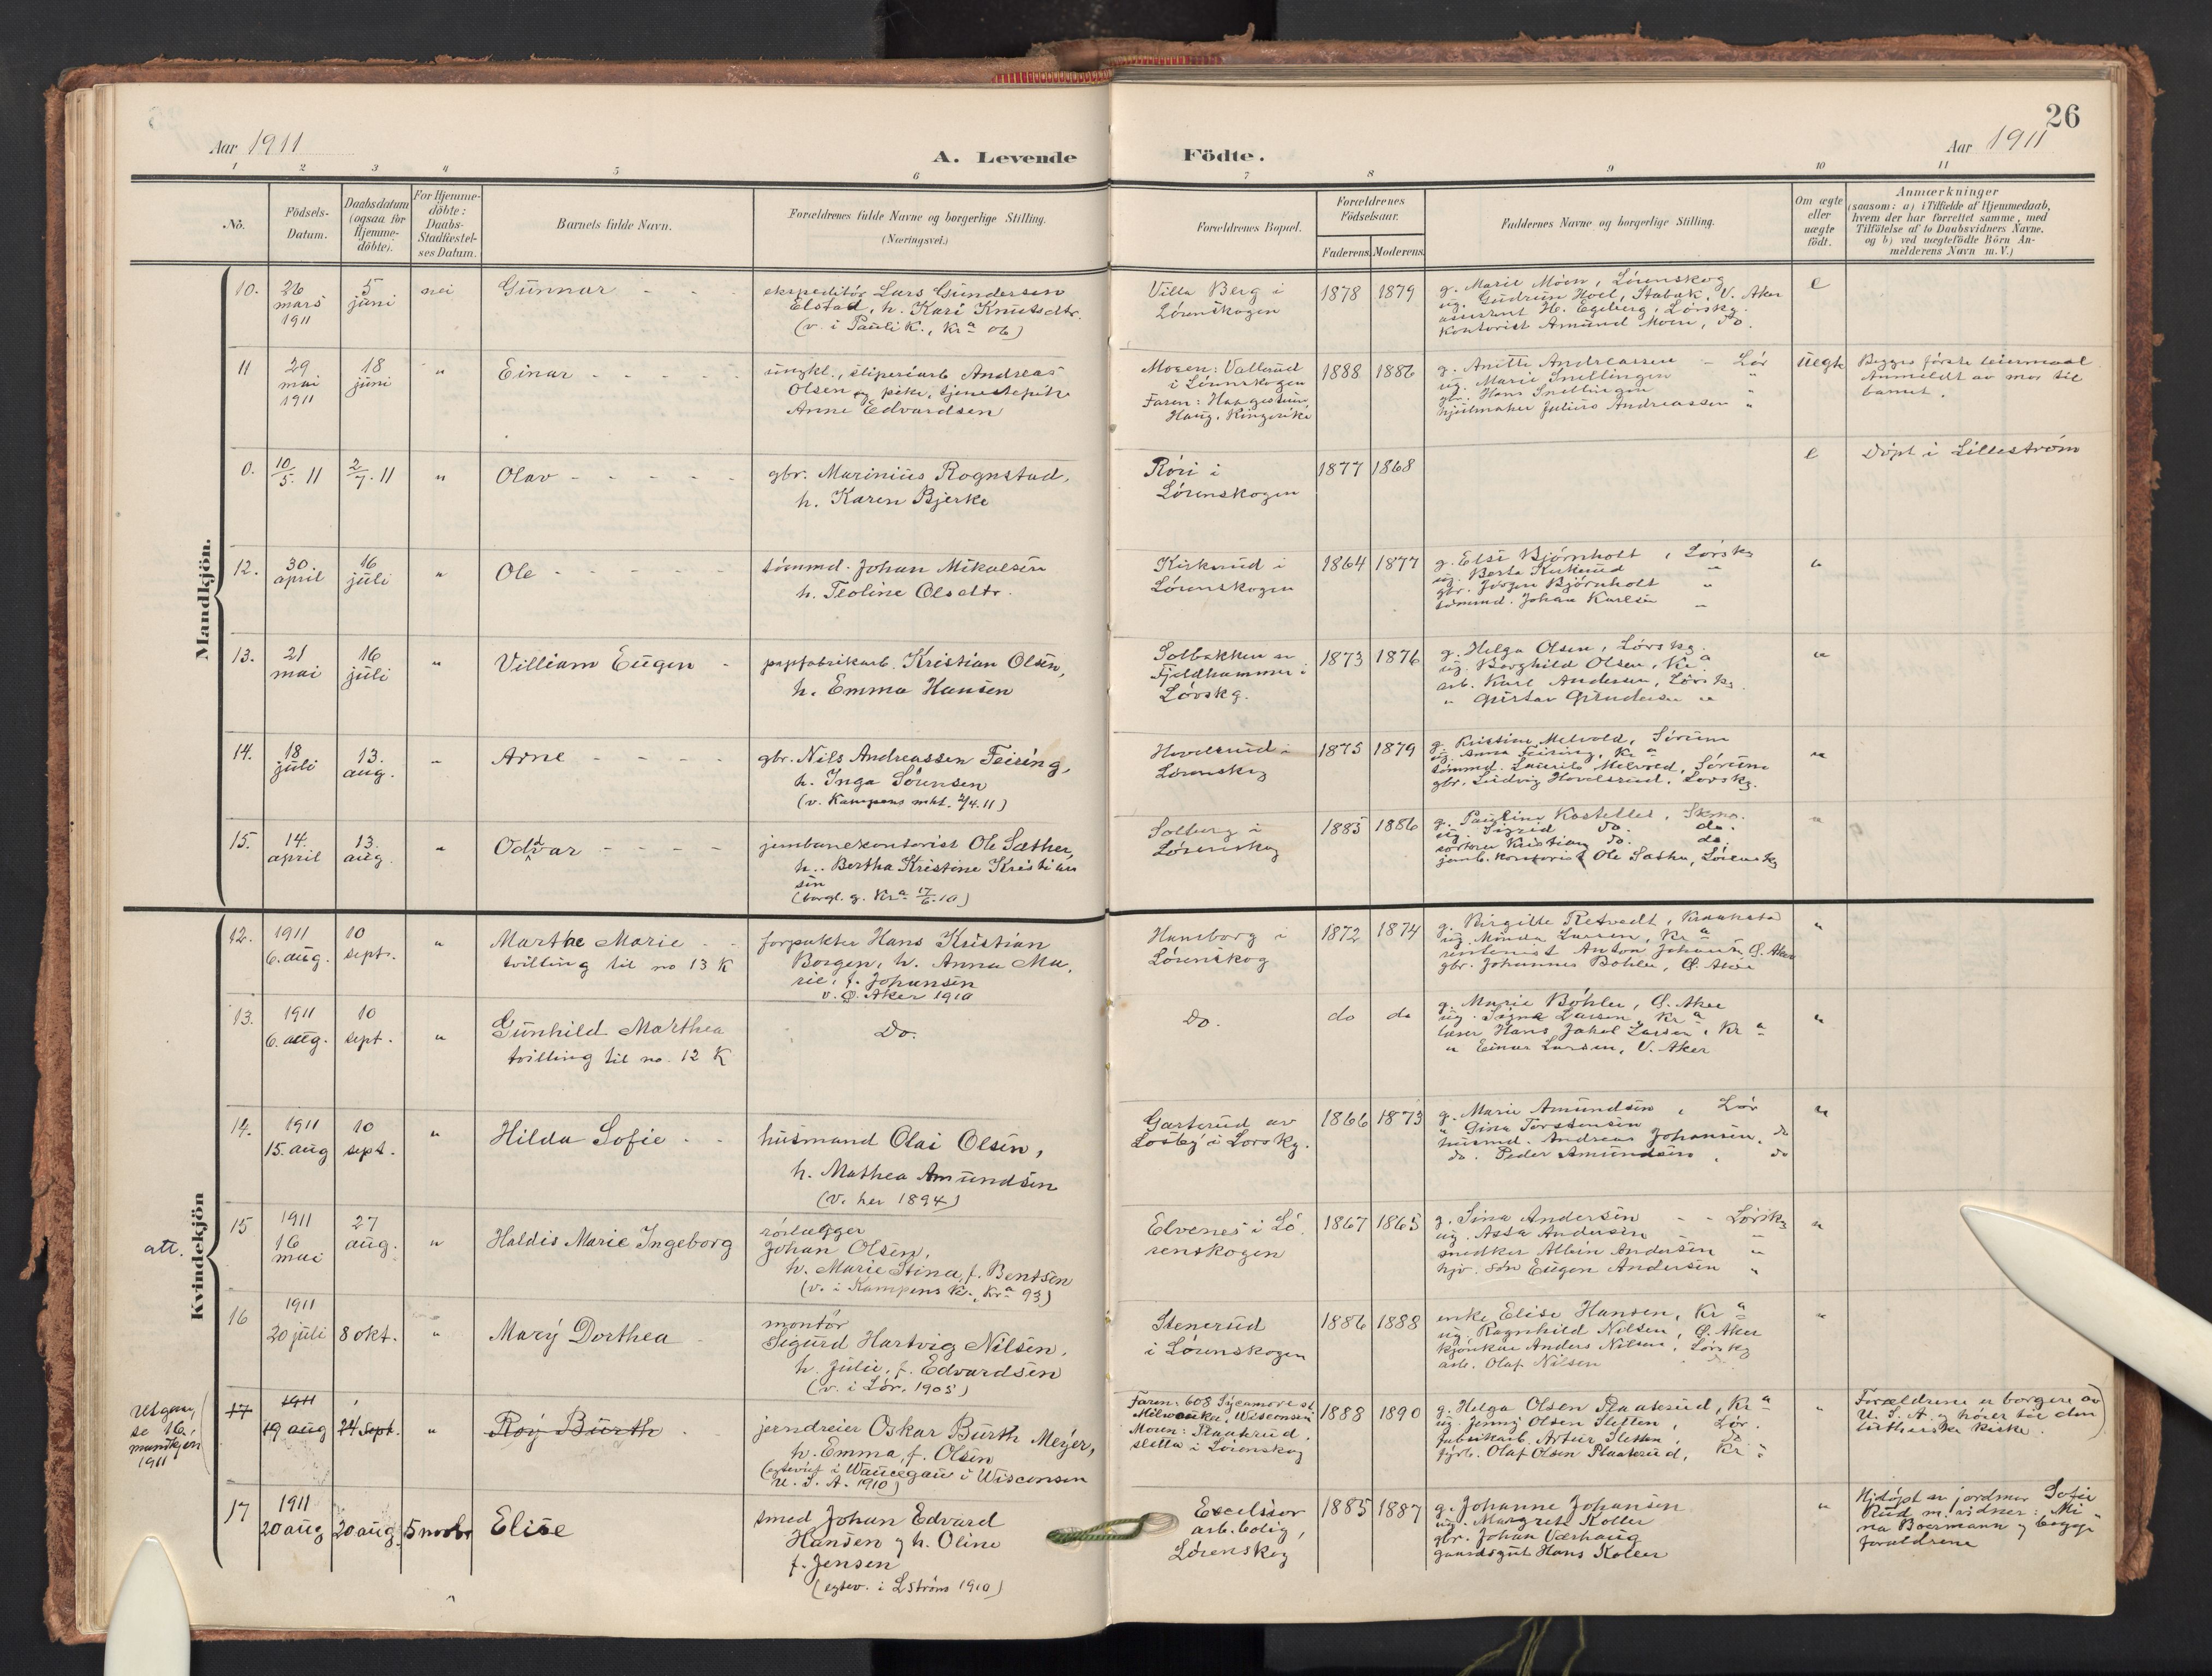 26
Aar 1911
A. Levende Födte.
Aar 1911
1 2 3 4 5 6 7 8 9 10 11
No.
Födsels-Datum.
Daabsdatum (ogsaa for Hjemme-döbte).
For Hjemme-döbte: Daabs-Stadfæstel-ses Datum.
Barnets fulde Navn.
Forældrenes fulde Navne og borgerlige Stilling. (Næringsvei.)
Forældrenes Bopæl.
Forældrenes Födselsaar.
Faderens. Moderens.
Faddernes Navne og borgerlige Stilling.
Om ægte eller uægte födt.
Anmærkninger
(saasom: a) i Tilfælde af Hjemmedaab,
hvem der har forrettet samme, med
Tilföielse af to Daabsvidners Navne.
og b) ved uægtefödte Börn An-
melderens Navn m. V.)
Mandkjön.
10. 26 mars 1911
5 juni
nei
Gunnar
ekspeditör Lars Gundersen
Elstad, h. Kari Knutsdtr.
(v. i Pauli K., Kra 06)
Villa Berg i
Lörenskogen
1878 1879
g. Marie Moen, Lörenskog
ug. Gudrun Hoel, Stabæk, V. Aker
assistent H. Egeberg, Lörskg.
kontorist Amund Moen, do.
e
11 29 mai 1911
18 juni
"
Einar
ungkl., sliperiarb Andreas
Olsen og pike, tjenestepike
Anne Edvardsen
Moren: Vallerud
i Lörenskogen
Faren:
Haug, Ringerike
1888 1886
g. Anette Andreassen Lör
ug. Marie Snellingen "
gbr. Hans Snellingen "
hjulmaker Julius Andreassen "
uegte
Begges förste leiermaal
Anmeldt av mor til
barnet.
0. 10/5. 11
2/7. 11
"
Olav
gbr. Marinius Rognstad,
h. Karen Bjerke
Röri i
Lörenskogen
1877 1868
e
Döpt i Lilleström
12. 30 april
16 juli
"
Ole
tömmd. Johan Mikalsen
h. Teoline Olsdtr.
Kirkerud i
Lörenskogen
1864 1877
g. Else Bjørnholt, Lörskg
ug. Berta Kirkerud "
gbr. Jörgen Björnholt "
tömmd. Johan Karlsen "
"
13. 21 mai
16 juli
"
Villiam Eugen
papfabrikarb. Kristian Olsen,
h. Emma Hansen
Solbakken av
Fjeldhammer i
Lörskg.
1873 1876
g. Helga Olsen, Lörskg.
ug. Borghild Olsen, Kra
arb. Karl Andersen, Lörskg.
" Gustav Gundersen "
"
14. 18 juli
13. aug.
"
Arne
gbr. Nils Andreassen Feiring,
h. Inga Sörensen
(v. Kampens mht. 2/4. 11)
Hovelsrud i
Lörenskog
1875 1879
g. Kristine Melvold, Sörum
ug. Anna Feiring, Kra
tömmd. Laurits Melvold, Sörum
gbr. Ludvig Hovelsrud, Lörskg.
"
15. 14. april
13. aug.
"
Oddvar
jernbanekontorist Ole Sæther,
h. Bertha Kristine Kristian
sen
(borgl. g. Kra 17/6. 10)
Solberg i
Lörenskog
1885 1886
g. Pauline Kastellet, Skmo.
ug. Sigrid do. do.
sortörer Kristian do. do.
jernb. kontorist Ole Sæther, Lörenskg
"
Kvindekjön
12. 1911 6. aug.
10 sept.
"
Marthe Marie
tvilling til no 13 K
forpakter Hans Kristian
Borgen, h. Anna Ma,
rie, f. Johansen
v. Ø. Aker 1910
Haneborg i
Lörenskog
1872 1874
g. Birgitte Retvedt, Kraakstad
ug. Minda Larsen, Kra
rentenist Anton Johansen, Ø. Aker
gbr. Johannes Bøhler, Ø. Aker
"
13. 1911 6. aug.
10 sept.
"
Gunhild Marthea
tvilling til no. 12 K
Do.
Do.
do do
g. Marie Böhler, Ø. Aker
ug. Signe Larsen, Kra
lærer Hans Jakob Larsen, Kra
" Einar Larsen, V. Aker
"
14. 1911 15. aug
10 sept.
"
Hilda Sofie
husmand Olai Olsen,
h. Mathea Amundsen
(v. her 1894)
Garterud av
Losby i Lörskg.
1866 1873
g. Marie Amundsen, Lör
" Gina Torstensen
husmd. Andreas Johansen, do
do. Peder Amundsen, do
"
att.
15 1911 16 mai
27 aug.
"
Haldis Marie Ingeborg
rörlægger
Johan Olsen,
h. Marie Stina, f. Bentsen
(v. i Kampens K., Kra 93)
Elvenes i Lö
renskogen
1867 1865
g. Sina Andersen Lörskg
ug. Asta Andersen "
snedker Albin Andersen "
hjv. sön Eugen Andersen "
"
16 1911 20 juli
8 okt.
"
Mary Dorthea
montör
Sigurd Hartvig Nilsen,
h. Julie, f. Edvardsen
(v. i Lör. 1905)
Stenerud
i Lörenskogen
1886 1888
enke Elise Hansen, Kra
ug. Ragnhild Nilsen, Ø. Aker
Anders Nilsen, Lörskg
arb. Olaf Nilsen do.
"
Utgaar,
se 16,
mandkjön
1911
17 1911 19 aug
24 sept.
"
Roy Burth
jerndreier Oskar Burth Meyer,
h. Emma, f. Olsen
(egteviet i Waucegau i Wisconsin
U. S. A. 1910)
Faren: 608 Sycamore st
Milwauke, Wisconsin
Moren: Staaterud,
sletta i Lörenskog
1888 1890
g. Helga Olsen Staaterud, Kra
ug. Jenny Olsen Sletten, Lör.
fabrikarb. Artur Sletten, do.
fyrb. Olaf Olsen Staaterud, Kra
"
Forældrene er borgere av
U. S. A. og hörer til den
lutherske kirke.
17 1911 20 aug
20 aug.
5 novbr
Elise
smed Johan Edvard
Hansen og h. Oline
f. Jensen
(egtev. i Lström 1910)
Excelsior
arb. bolig,
Lörenskog
1885 1887
g. Johanne Johansen
ug. Margrete Koller
gbr. Johan Værhaug
gaardsgut Hans Koller
"
Hjdöpt av jordmor Sofie
Rud m. vidner: Mi
na Boermann og begge
forældrene